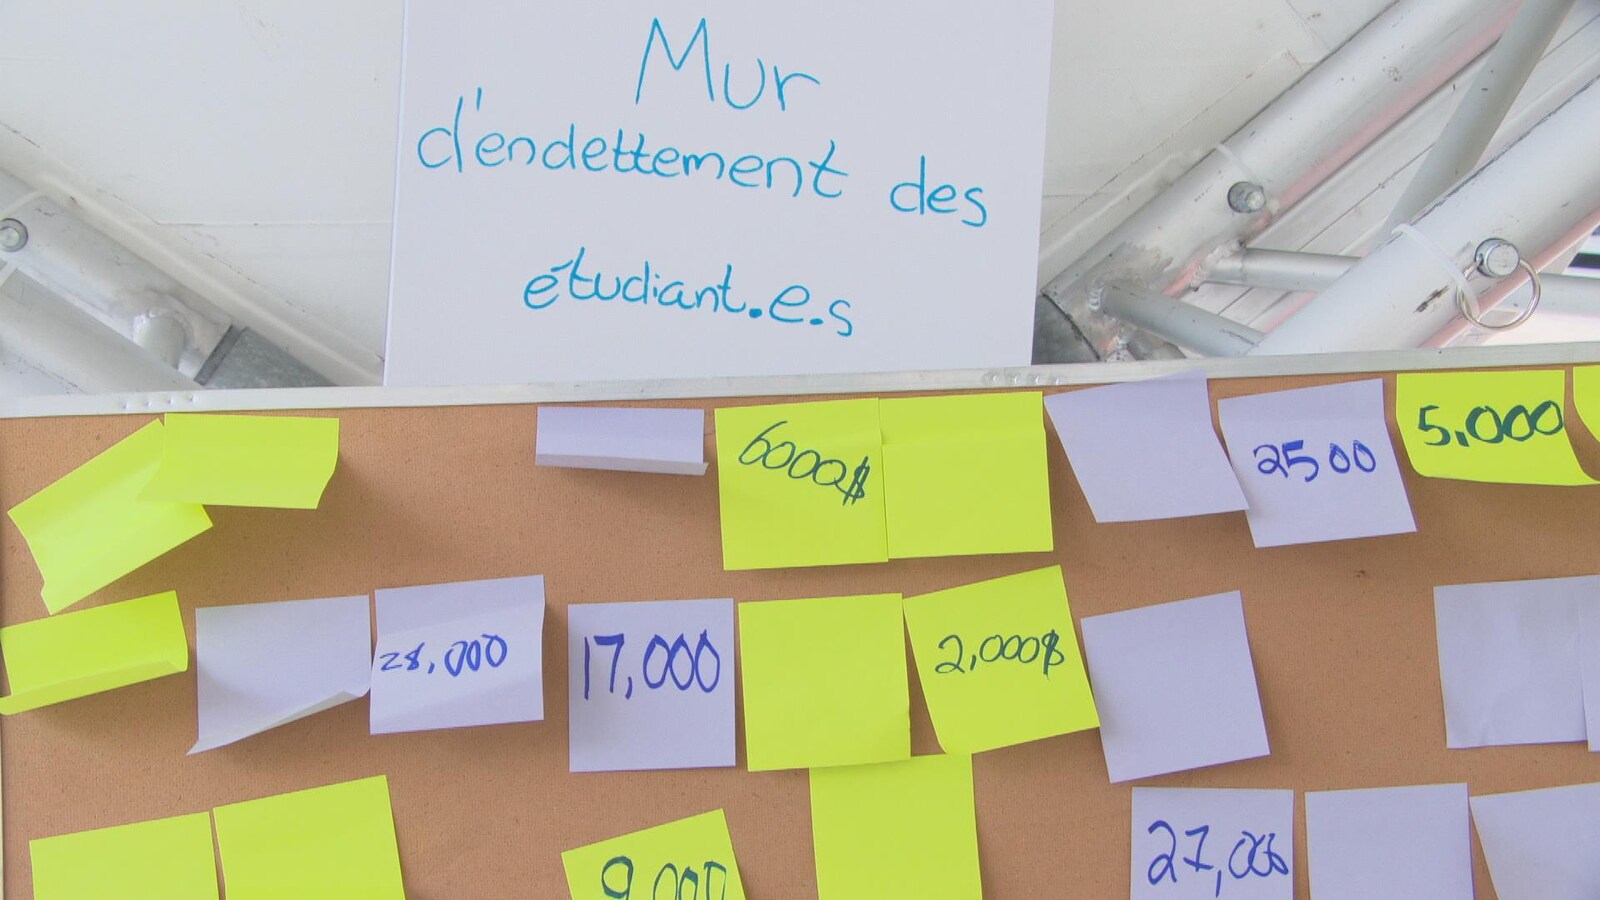 Mur
d'endettement des
étudiant.e.s
6000$
2500
5.000
28,000
17,000
2,000$
27,000
9,000